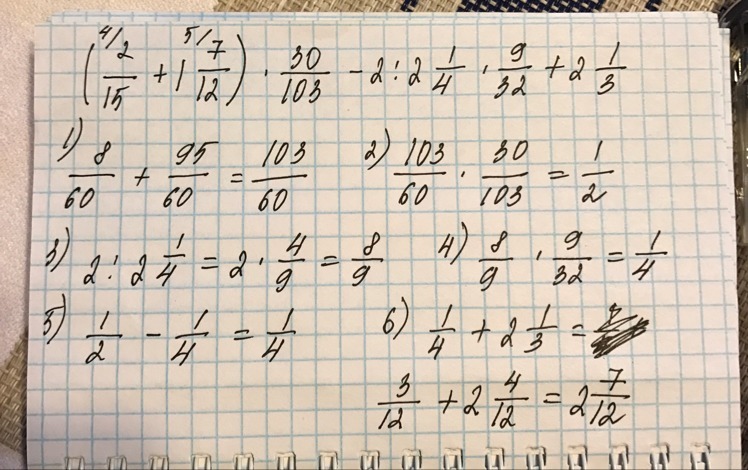 (4/ 2/15 + 1 5/ 7/12) · 30/103 - 2 : 2 1/4 · 9/32 + 2 1/3
1) 8/60 + 95/60 = 103/60 2) 103/60 · 30/103 = 1/2
3) 2 : 2 1/4 = 2 · 4/9 = 8/9 4) 8/9 · 9/32 = 1/4
5) 1/2 - 1/4 = 1/4 6) 1/4 + 2 1/3 =
3/12 + 2 4/12 = 2 7/12